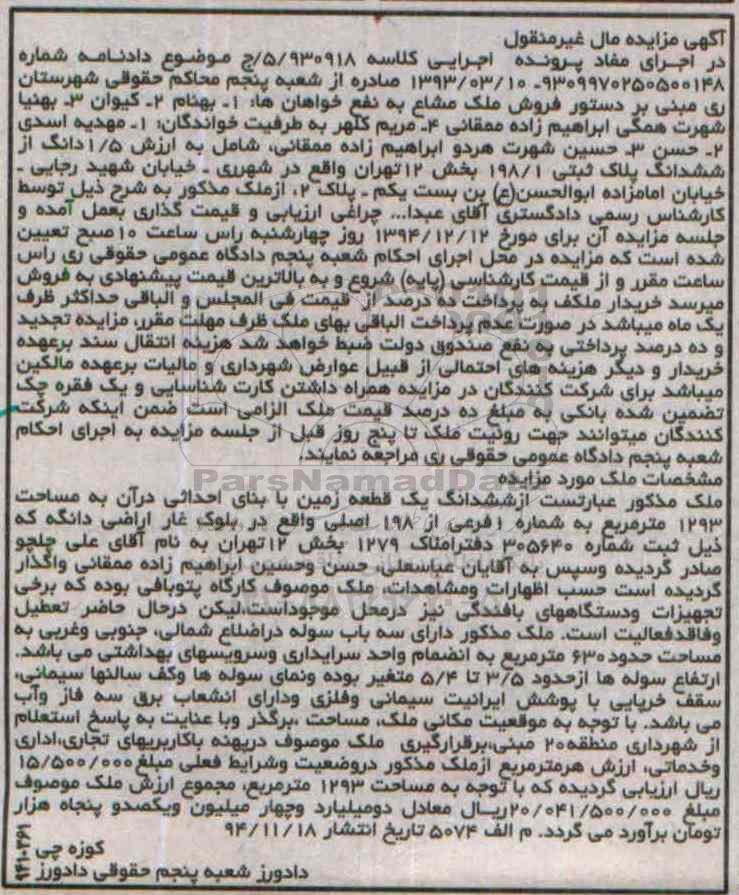 آگهی مزایده مال غیرمنقول
در اجرای مفاد پرونده اجرایی کلاسه ۵/۹۳۰۹۱۸/ج موضوع دادنامه شماره
۹۳۰۹۹۷۰۲۵۰۵۰۰۱۴۸- ۱۳۹۳/۰۳/۱۰ صادره از شعبه پنجم محاکم حقوقی شهرستان
ری مبنی بر دستور فروش ملک مشاع به نفع خواهان ها: ۱ـ بهنام ۲ـ کیوان ۳ـ بهنیا
شهرت همگی ابراهیم زاده ممقانی ۴ـ مریم کلهر به طرفیت خواندگان: ۱ـ مهدیه اسدی
۲ـ حسن ۳ـ حسین شهرت هردو ابراهیم زاده ممقانی، شامل به ارزش ۱/۵دانگ از
ششدانگ پلاک ثبتی ۱۹۸/۱ بخش ۱۲تهران واقع در شهرری ـ خیابان شهید رجایی ـ
خیابان امامزاده ابوالحسن(ع) بن بست یکم ـ پلاک ۲، ازملک مذکور به شرح ذیل توسط
کارشناس رسمی دادگستری آقای عبدا... چراغی ارزیابی و قیمت گذاری بعمل آمده و
جلسه مزایده آن برای مورخ ۱۳۹۴/۱۲/۱۲ روز چهارشنبه راس ساعت ۱۰صبح تعیین
شده است که مزایده در محل اجرای احکام شعبه پنجم دادگاه عمومی حقوقی ری راس
ساعت مقرر و از قیمت کارشناسی (پایه) شروع و به بالاترین قیمت پیشنهادی به فروش
میرسد خریدار ملکف به پرداخت ده درصد از قیمت فی المجلس و الباقی حداکثر ظرف
یک ماه میباشد در صورت عدم پرداخت الباقی بهای ملک ظرف مهلت مقرر، مزایده تجدید
و ده درصد پرداختی به نفع صندوق دولت ضبط خواهد شد هزینه انتقال سند برعهده
خریدار و دیگر هزینه های احتمالی از قبیل عوارض شهرداری و مالیات برعهده مالکین
میباشد برای شرکت کنندگان در مزایده همراه داشتن کارت شناسایی و یک فقره چک
تضمین شده بانکی به مبلغ ده درصد قیمت ملک الزامی است ضمن اینکه شرکت
کنندگان میتوانند جهت روئیت ملک تا پنج روز قبل از جلسه مزایده به اجرای احکام
شعبه پنجم دادگاه عمومی حقوقی ری مراجعه نمایند.
مشخصات ملک مورد مزایده
ParsNamadData
ملک مذکور عبارتست ازششدانگ یک قطعه زمین با بنای احداثی درآن به مساحت
۱۲۹۳ مترمربع به شماره ۱فرعی از ۱۹۸ اصلی واقع در بلوک غار اراضی دانگه که
ذیل ثبت شماره ۳۰۵۶۴۰ دفتراملاک ۱۲۷۹ بخش ۱۲تهران به نام آقای علی چلچو
صادر گردیده وسپس به آقایان عباسعلی، حسن وحسین ابراهیم زاده ممقانی واگذار
گردیده است حسب اظهارات ومشاهدات، ملک موصوف کارگاه پتوبافی بوده که برخی
تجهیزات ودستگاههای بافندگی نیز درمحل موجوداست،لیکن درحال حاضر تعطیل
وفاقدفعالیت است. ملک مذکور دارای سه باب سوله دراضلاع شمالی، جنوبی وغربی به
مساحت حدود۶۳۰ مترمربع به انضمام واحد سرایداری وسرویسهای بهداشتی می باشد.
ارتفاع سوله ها ازحدود ۳/۵ تا ۵/۴ متغیر بوده ونمای سوله ها وکف سالنها سیمانی،
سقف خرپایی با پوشش ایرانیت سیمانی وفلزی ودارای انشعاب برق سه فاز وآب
می باشد. با توجه به موقعیت مکانی ملک، مساحت ،برگذر وبا عنایت به پاسخ استعلام
از شهرداری منطقه۲۰ مبنی،برقرارگیری ملک موصوف درپهنه باکاربریهای تجاری،اداری
وخدماتی، ارزش هرمترمربع ازملک مذکور دروضعیت وشرایط فعلی مبلغ۱۵/۵۰۰/۰۰۰
ریال ارزیابی گردیده که با توجه به مساحت ۱۲۹۳ مترمربع، مجموع ارزش ملک موصوف
مبلغ ۲۰/۰۴۱/۵۰۰/۰۰۰ریال معادل دومیلیارد وچهار میلیون ویکصدو پنجاه هزار
تومان برآورد می گردد. م الف ۵۰۷۴ تاریخ انتشار ۹۴/۱۱/۱۸
کوزه چی
دادورز شعبه پنجم حقوقی دادورز